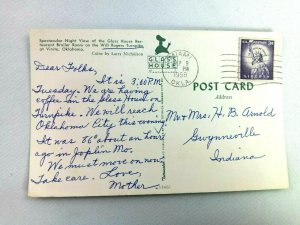 Spectacular Night View of the Glass House Res-
taurant Broiler Room on the Will Rogers Turnpike
at Vinita, Oklahoma.
Color by Larry Nicholson
GLASS
HOUSE
MIAMI
PM
1958
OKLA.
Dear Folks,
It is 3:60 P.M.
Tuesday. We are having
coffee in the Glass House on
Turnpike. We will reach
Oklahoma City this evening
It was 86° about an hour
ago in Joplin Mo.
We must move on now
Take care. Love,
Mother.
POST CARD
Address
Mr & Mrs. H. B. Arnold
Gwynneville
Indiana